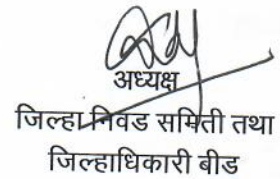 अध्यक्ष
जिल्हा निवड समिती तथा
जिल्हाधिकारी बीड